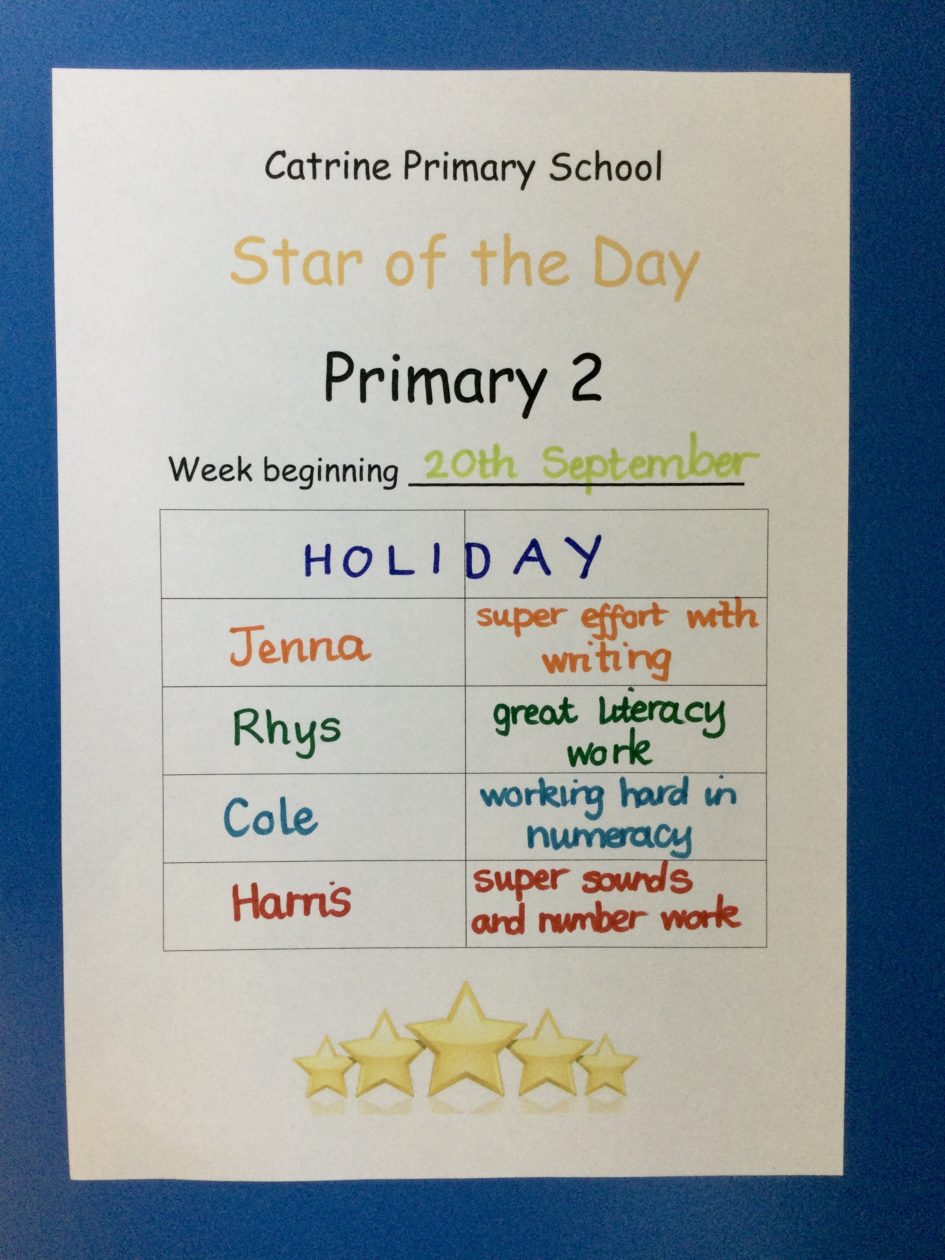 Catrine Primary School
Star of the Day
Primary 2
Week beginning 20th September
HOLIDAY
Jenna
super effort with
writing
Rhys
great literacy
work
Cole
working hard in
numeracy
Harris
super sounds
and number work